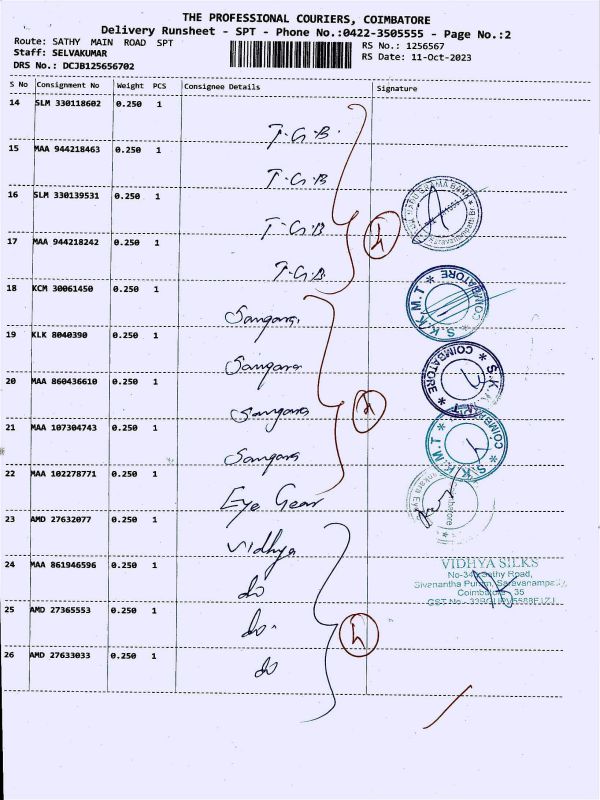 THE PROFESSIONAL COURIERS, COIMBATORE
Delivery Runsheet - SPT - Phone No.:0422-3505555 - Page No.:2
Route: SATHY MAIN ROAD SPT
Staff: SELVAKUMAR
DRS No.: DCJB125656702
RS No.: 1256567
RS Date: 11-Oct-2023
S No Consignment No Weight PCS Consignee Details Signature
14 SLM 330118602 0.250 1
T.G.B.
15 MAA 944218463 0.250 1
T.G.B
16 SLM 330139531 0.250 1
T.G.B
17 MAA 944218242 0.250 1
T.G.B.
18 KCM 30061450 0.250 1
Sangara
19 KLK 8040390 0.250 1
Sangara
20 MAA 860436610 0.250 1
Sangara
21 MAA 107304743 0.250 1
Sangara
22 MAA 102278771 0.250 1
Eye Gear
23 AMD 27632077 0.250 1
Vidhya
24 MAA 861946596 0.250 1
do
25 AMD 27365553 0.250 1
do.
26 AMD 27633033 0.250 1
do
4
4
4
S.K.K.M.T * COIMBATORE *
S.K.K.M.T * COIMBATORE *
S.K.K.M.T * COIMBATORE *
VIDHYA SILKS
No-34, Sathy Road,
Sivanantha Puram, Saravanampatti,
Coimbatore 35